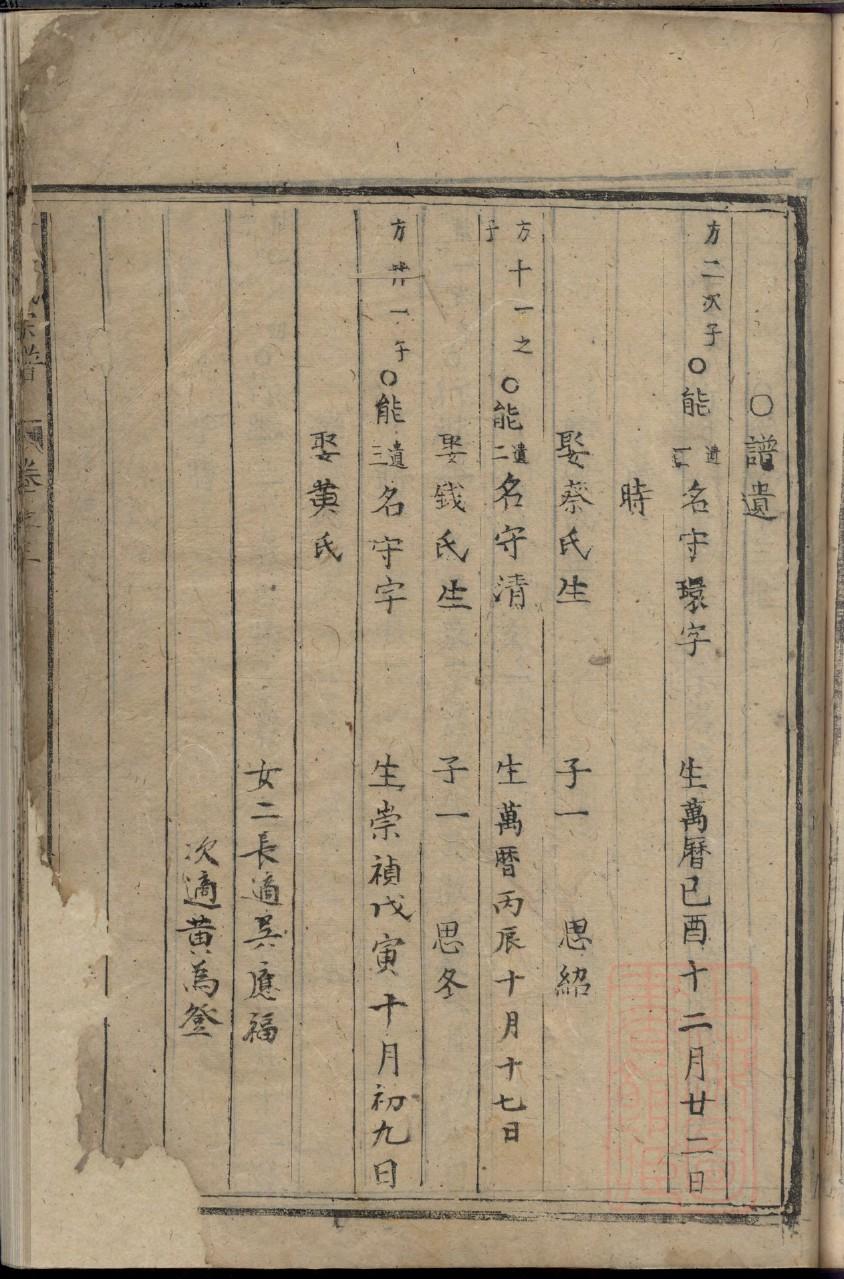 ○譜遺
方二次子○能遺一名守環字 生萬曆己酉十二月廿二日
時
娶蔡氏生 子一 思紹
方十一之子○能遺二名守清 生萬曆丙辰十月十七日
娶錢氏生 子一 思冬
方卅一子○能遺三名守字 生崇禎戊寅十月初九日
娶黃氏
女二長適吳應福
次適黃為登
宗譜 卷